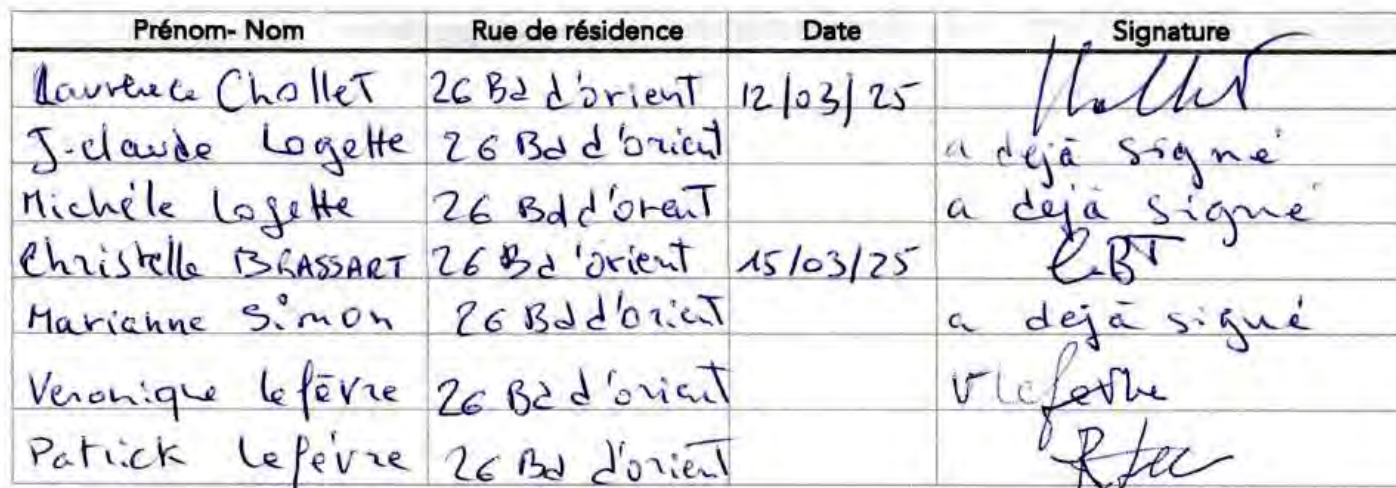 Prénom- Nom Rue de résidence Date Signature
Laurence Chollet 26 Bd d'orient 12/03/25 Chollet
J-claude Logette 26 Bd d'orient a dejà signé
Michéle Logette 26 Bd d'orent a dejà signé
Christelle BRASSART 26 Bd 'orient 15/03/25
Marianne Simon 26 Bd d'orient a dejà signé
Veronique lefèvre 26 Bd d'orient V lefevre
Patrick lefévre 26 Bd d'orient